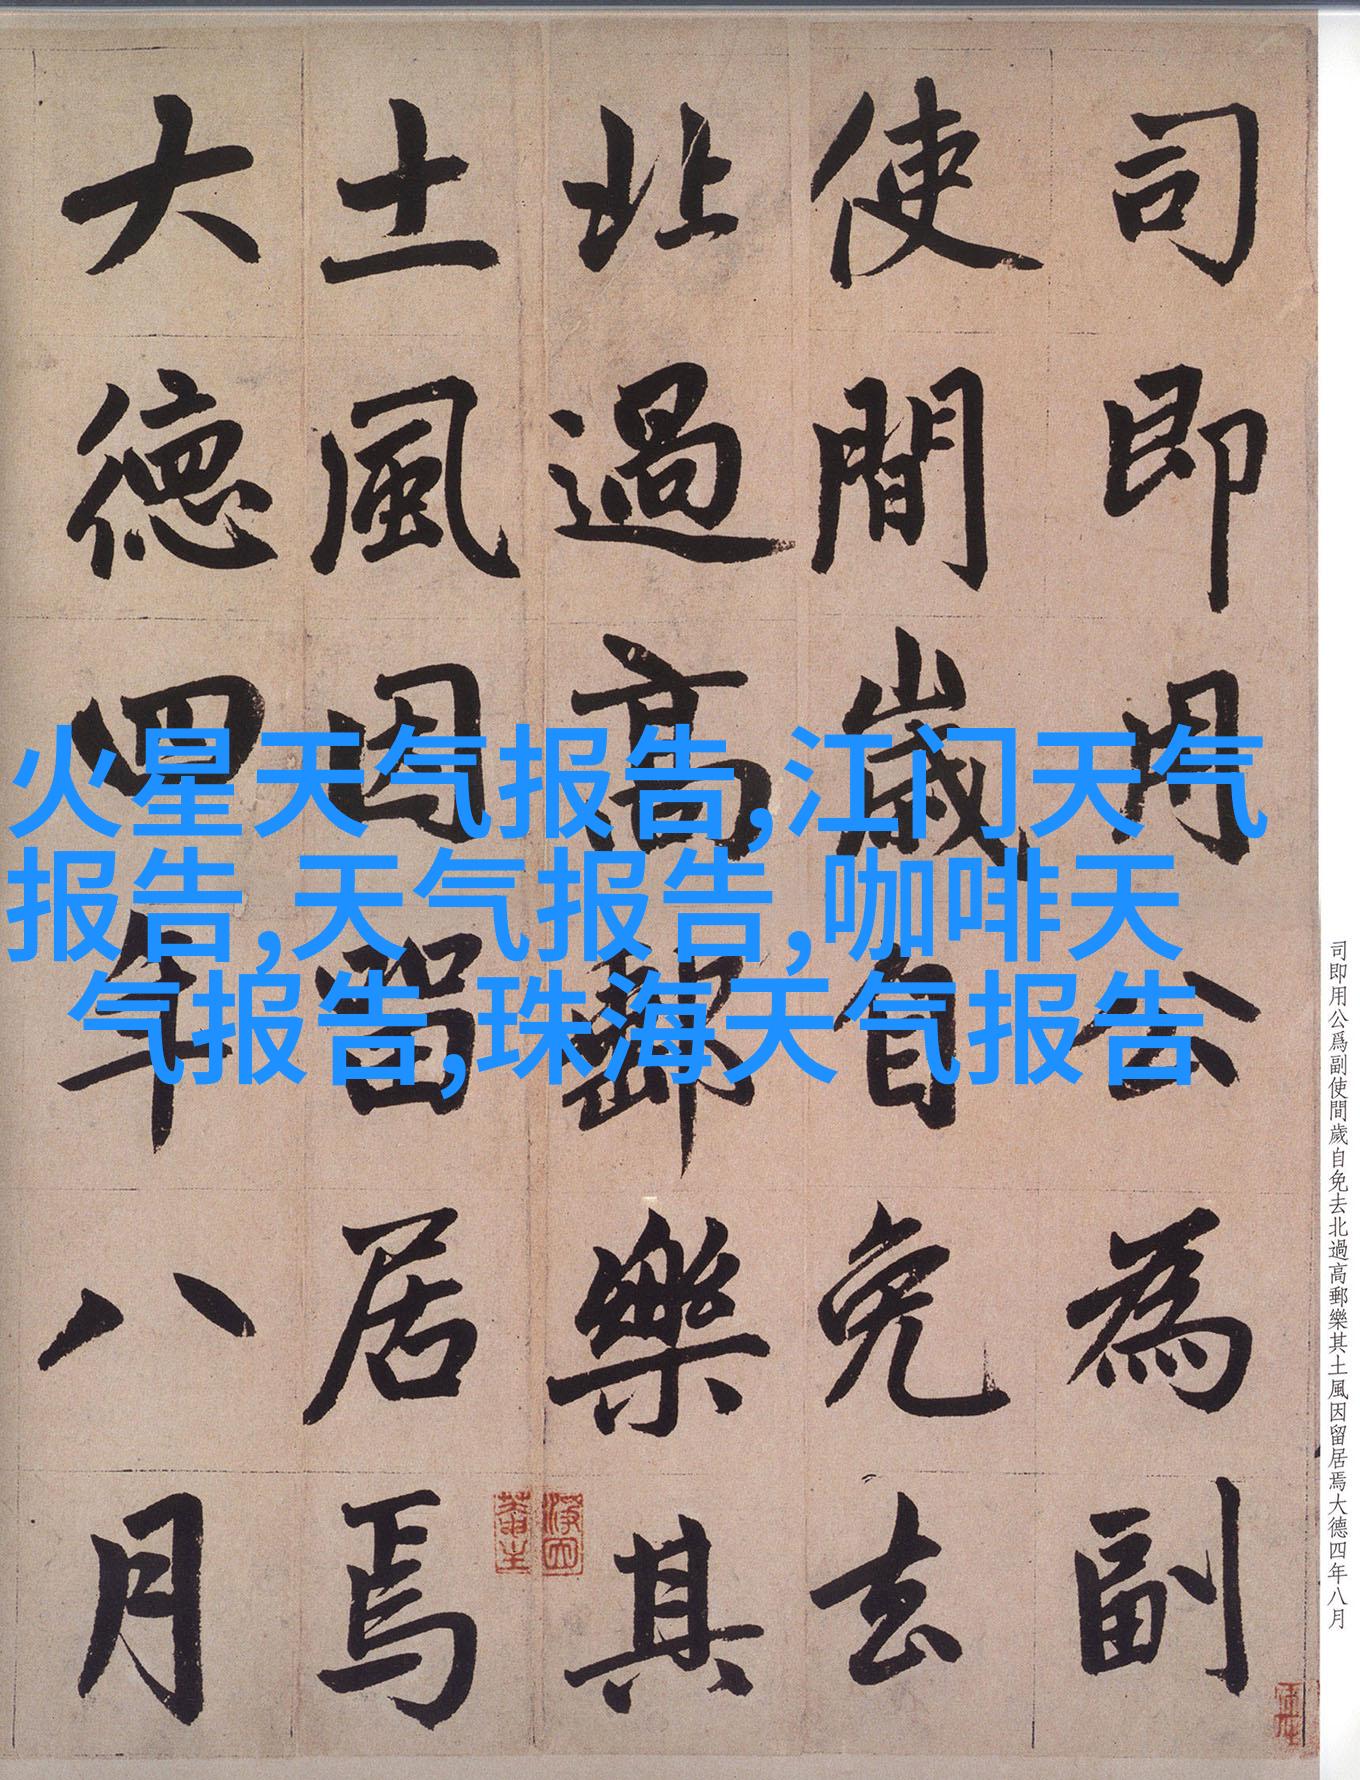 司即用公為副
使間歲自免去
北過高郵樂其
土風因留居焉
大德四年八月
火星天气报告,江门天气
报告,天气报告,咖啡天
气报告,珠海天气报告
司即用公爲副使間歲自免去北過高郵樂其土風因留居焉大德四年八月